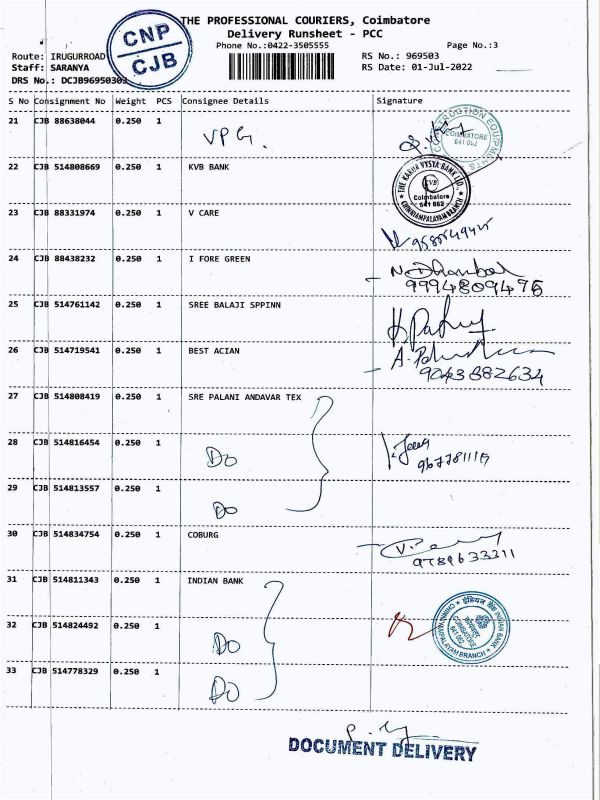 CNP
CJB
THE PROFESSIONAL COURIERS, Coimbatore
Delivery Runsheet - PCC
Phone No.:0422-3505555
Page No.:3
Route: IRUGURROAD
RS No.: 969503
Staff: SARANYA
RS Date: 01-Jul-2022
DRS No.: DCJB96950303
S No Consignment No Weight PCS Consignee Details Signature
21 CJB 88638044 0.250 1 VPG.
COIMBATORE
641 062
22 CJB 514808669 0.250 1 KVB BANK
THE KARUR VYSYA BANK LTD.
KVB
Coimbatore
641 062
CHINNIAMPALAYAM BRANCH
23 CJB 88331974 0.250 1 V CARE
24 CJB 88438232 0.250 1 I FORE GREEN
9994809476
25 CJB 514761142 0.250 1 SREE BALAJI SPPINN
26 CJB 514719541 0.250 1 BEST ACIAN
9043882634
27 CJB 514808419 0.250 1 SRE PALANI ANDAVAR TEX
28 CJB 514816454 0.250 1 Do
29 CJB 514813557 0.250 1 Do
30 CJB 514834754 0.250 1 COBURG
9789633311
31 CJB 514811343 0.250 1 INDIAN BANK
इंडियन बैंक INDIAN BANK
COIMBATORE
641 062
32 CJB 514824492 0.250 1 Do
33 CJB 514778329 0.250 1 Do
DOCUMENT DELIVERY